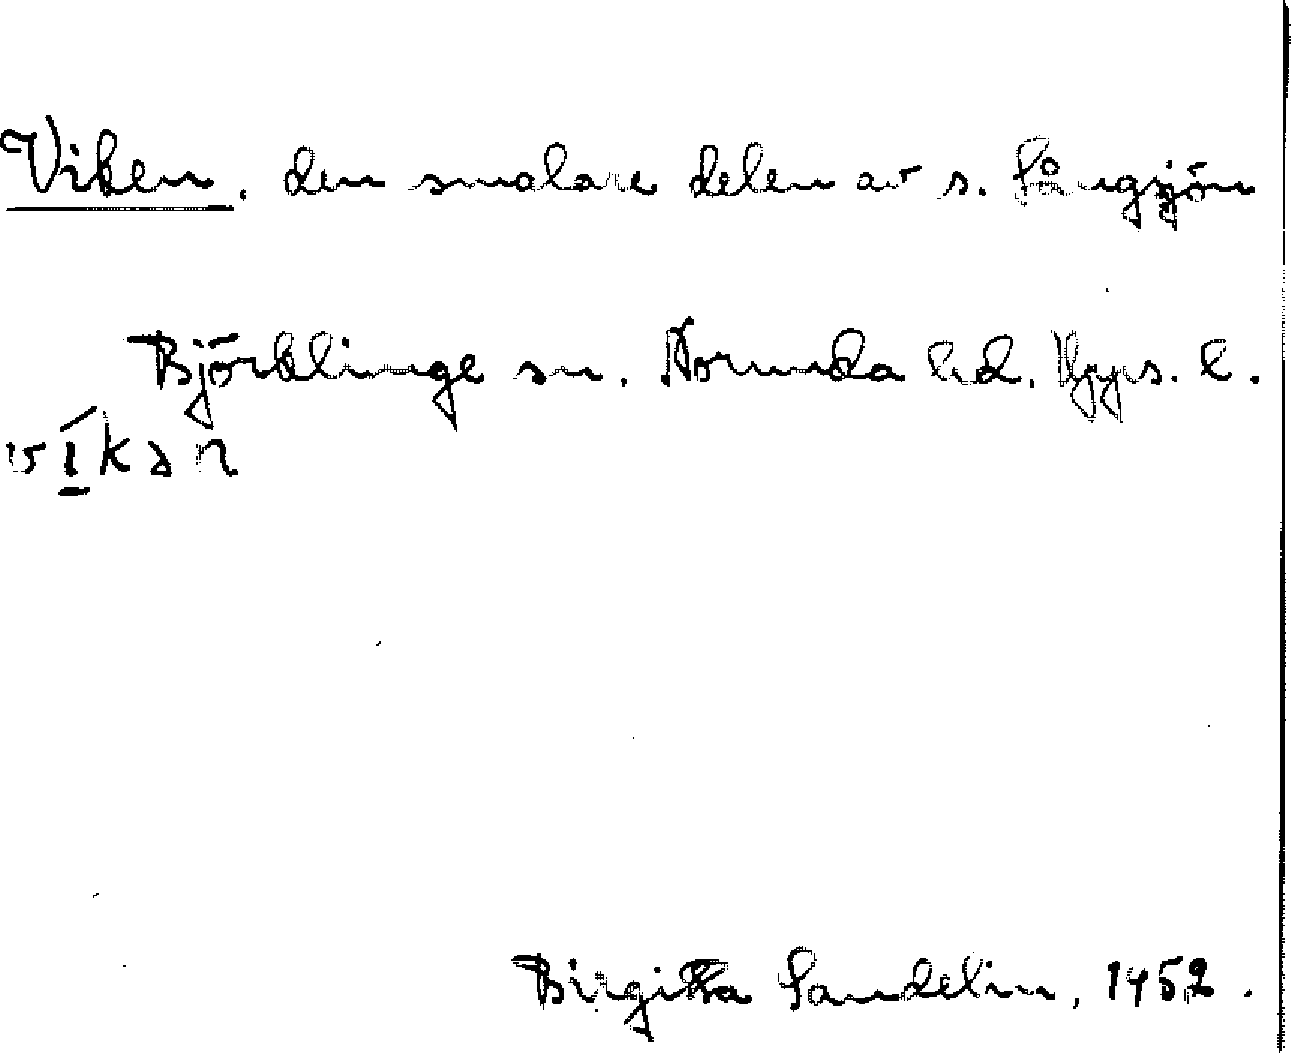 Viken, den smalare delen av s. Långsjön
Björklinge sn. Norunda hd. Upps. l.
vī̲kən
Birgitta Sandelin, 1952.